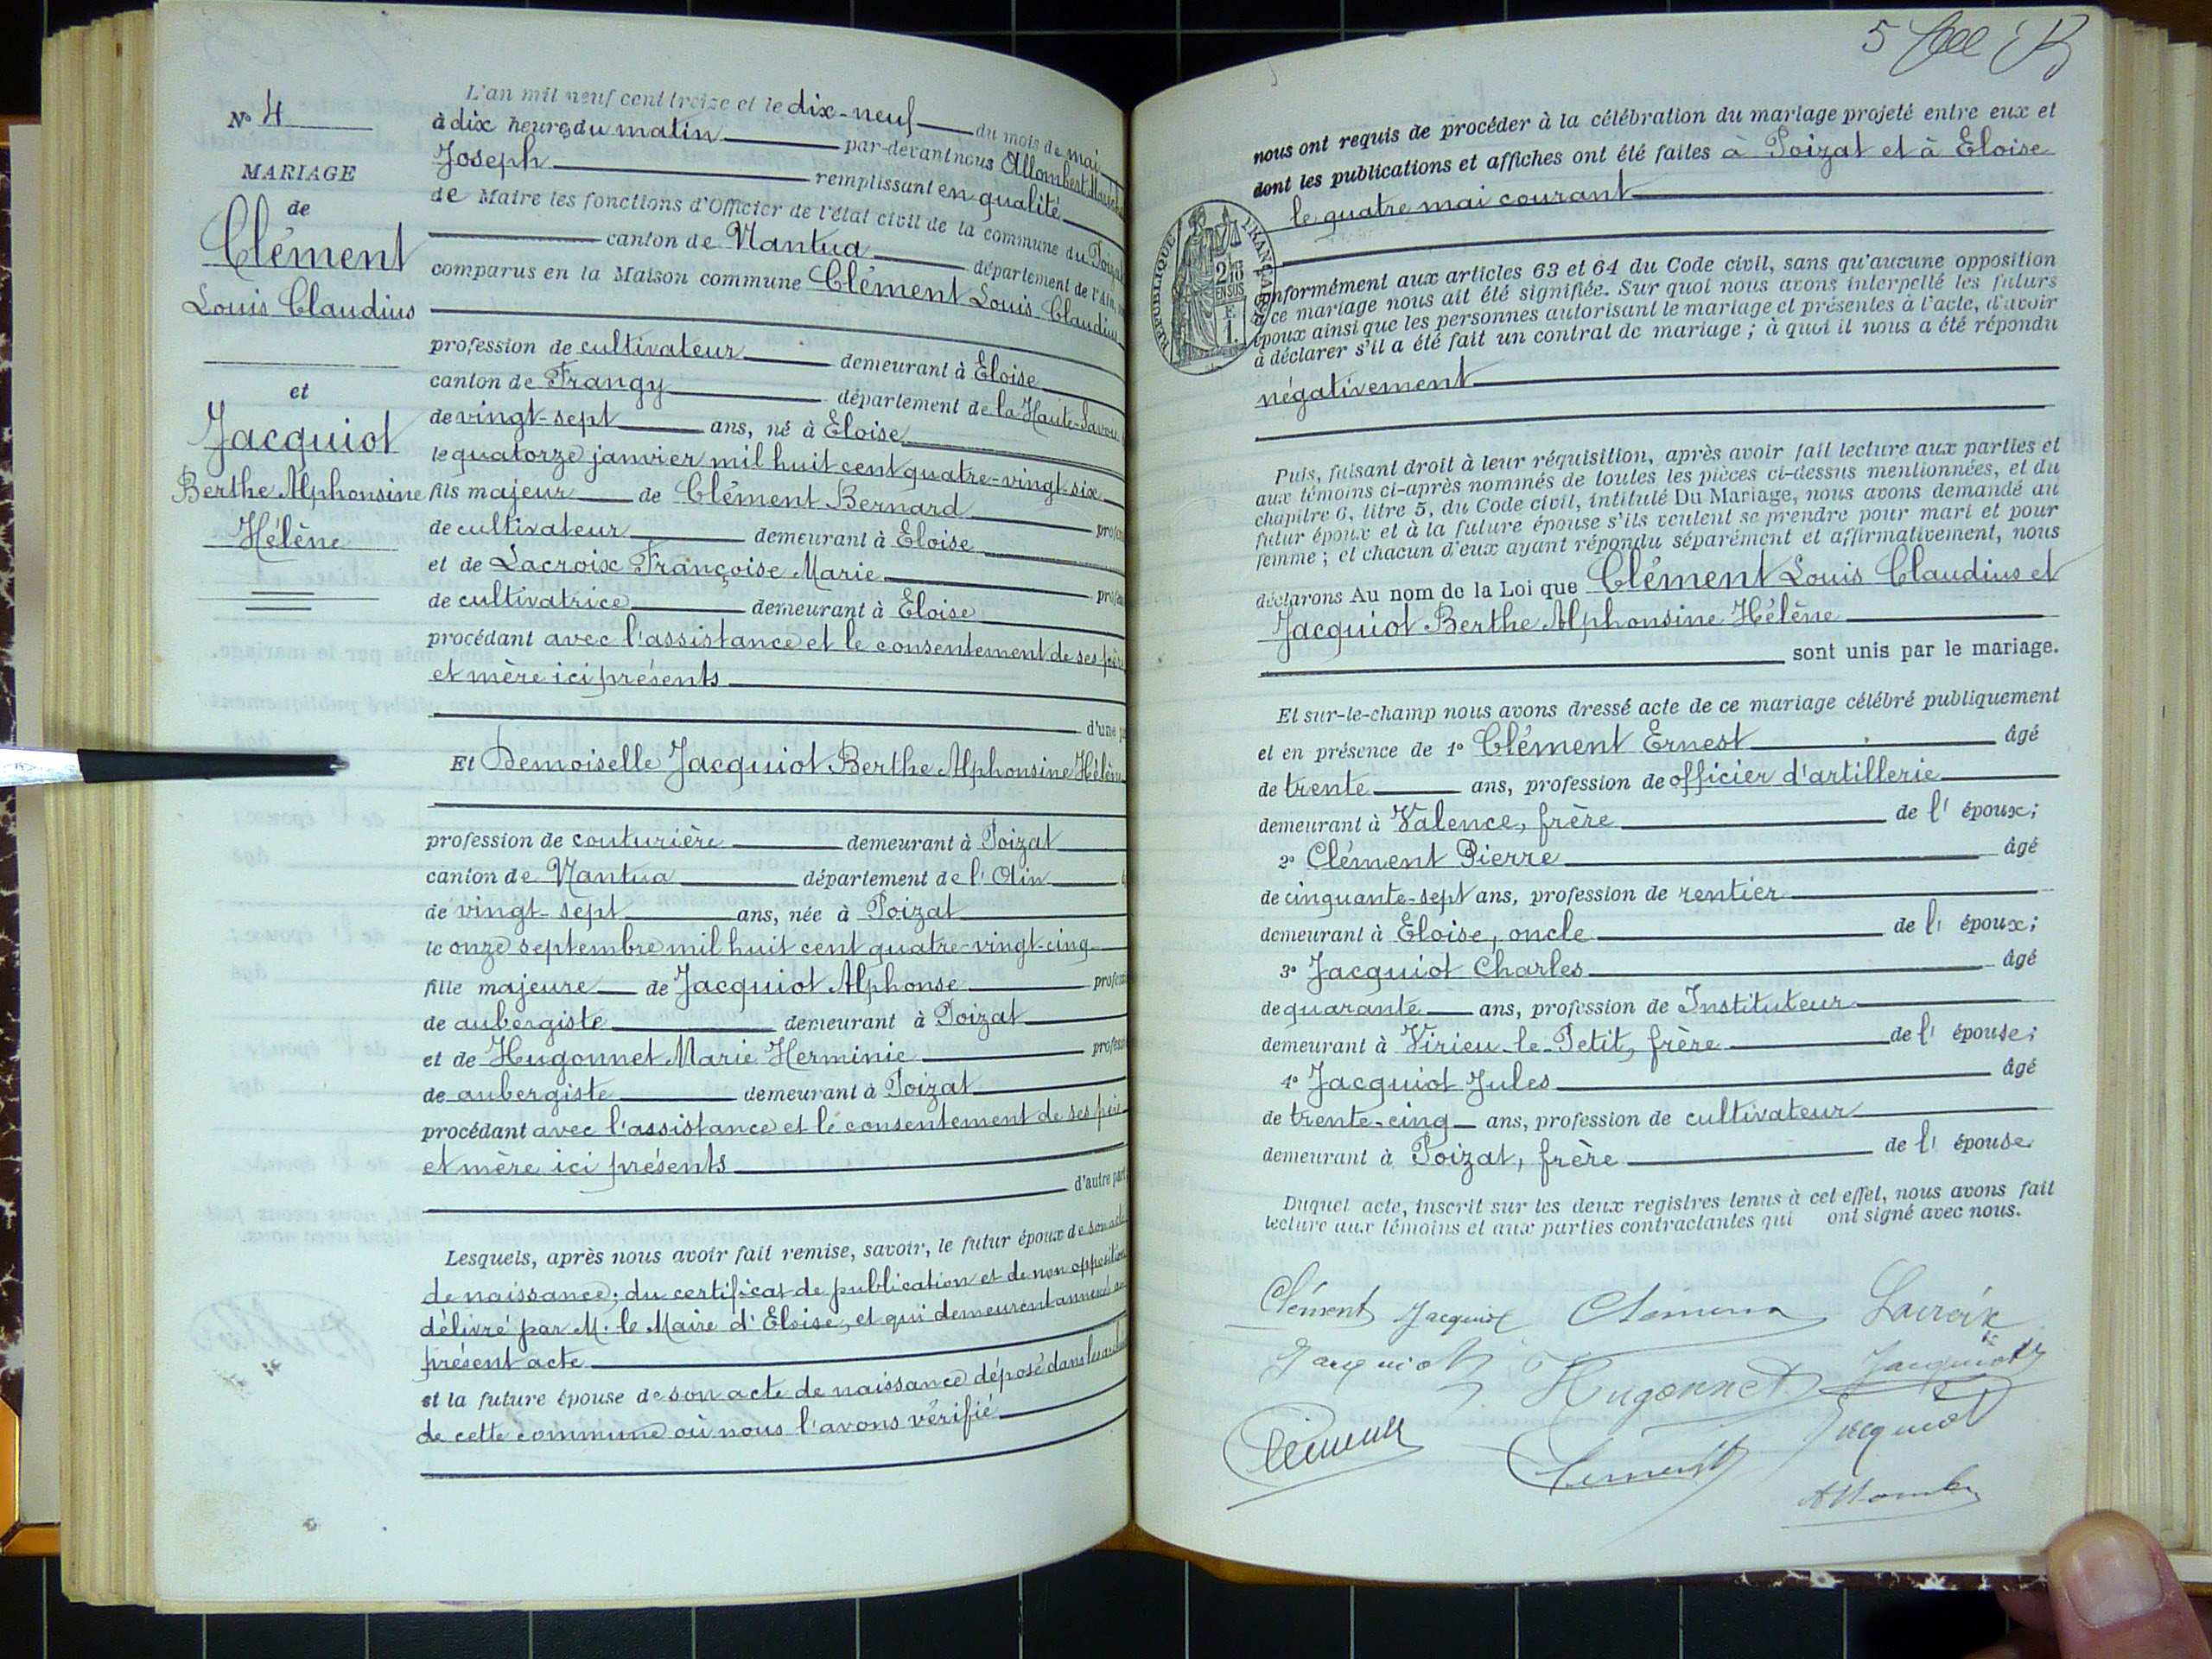 N° 4
MARIAGE
de
Clément
Louis Claudius
et
Jacquiot
Berthe Alphonsine
Hélène
L'an mil neuf cent treize et le dix-neuf du mois de mai
à dix heures du matin par-devant nous Allombert
Joseph remplissant en qualité
de Maire les fonctions d'Officier de l'état civil de la commune du Poizat
canton de Nantua département de l'Ain,
comparus en la Maison commune Clément Louis Claudius
profession de cultivateur demeurant à Eloise
canton de Frangy département de la Haute-Savoie
de vingt-sept ans, né à Eloise
le quatorze janvier mil huit cent quatre-vingt-six
fils majeur de Clément Bernard profes
de cultivateur demeurant à Eloise
et de Lacroix Françoise Marie profes
de cultivatrice demeurant à Eloise
procédant avec l'assistance et le consentement de ses père
et mère ici présents
d'une p
Et Demoiselle Jacquiot Berthe Alphonsine Hélène
profession de couturière demeurant à Poizat
canton de Nantua département de l'Ain
de vingt-sept ans, née à Poizat
le onze septembre mil huit cent quatre-vingt-cinq
fille majeure de Jacquiot Alphonse profess
de aubergiste demeurant à Poizat
et de Hugonnet Marie Herminie profess
de aubergiste demeurant à Poizat
procédant avec l'assistance et le consentement de ses père
et mère ici présents
d'autre part
Lesquels, après nous avoir fait remise, savoir, le futur époux de son acte
de naissance; du certificat de publication et de non opposition
délivré par M. le Maire d'Eloise, et qui demeurent annexés au
présent acte
et la future épouse de son acte de naissance déposé dans les archives
de cette commune où nous l'avons vérifié
5
nous ont requis de procéder à la célébration du mariage projeté entre eux et
dont les publications et affiches ont été faites à Poizat et à Eloise
le quatre mai courant
RÉPUBLIQUE FRANÇAISE
2/10
EN SUS
F.
1.
conformément aux articles 63 et 64 du Code civil, sans qu'aucune opposition
à ce mariage nous ait été signifiée. Sur quoi nous avons interpellé les futurs
époux ainsi que les personnes autorisant le mariage et présentes à l'acte, d'avoir
à déclarer s'il a été fait un contrat de mariage ; à quoi il nous a été répondu
négativement
Puis, faisant droit à leur réquisition, après avoir fait lecture aux parties et
aux témoins ci-après nommés de toutes les pièces ci-dessus mentionnées, et du
chapitre 6, titre 5, du Code civil, intitulé Du Mariage, nous avons demandé au
futur époux et à la future épouse s'ils veulent se prendre pour mari et pour
femme ; et chacun d'eux ayant répondu séparément et affirmativement, nous
déclarons Au nom de la Loi que Clément Louis Claudius et
Jacquiot Berthe Alphonsine Hélène
sont unis par le mariage.
Et sur-le-champ nous avons dressé acte de ce mariage célébré publiquement
et en présence de 1° Clément Ernest âgé
de trente ans, profession de officier d'artillerie
demeurant à Valence, frère de l' époux;
2° Clément Pierre âgé
de cinquante-sept ans, profession de rentier
demeurant à Eloise, oncle de l' époux;
3° Jacquiot Charles âgé
de quarante ans, profession de Instituteur
demeurant à Virieu-le-Petit, frère de l' épouse;
4° Jacquiot Jules âgé
de trente-cinq ans, profession de cultivateur
demeurant à Poizat, frère de l' épouse
Duquel acte, inscrit sur les deux registres tenus à cet effet, nous avons fait
lecture aux témoins et aux parties contractantes qui ont signé avec nous.
Clément Jacquiot Clément Lacroix
Jacquiot Hugonnet Jacquiot
Clément Clément Jacquiot